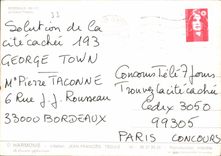 Solution de la
cité cachée 193
GEORGE TOWN
Mr Pierre TACONNE
6 Rue J. J. Rousseau
33000 BORDEAUX
Concours Télé 7 Jours
Trouvez la cité cachée
Cedex 3050
99305
PARIS CONCOURS